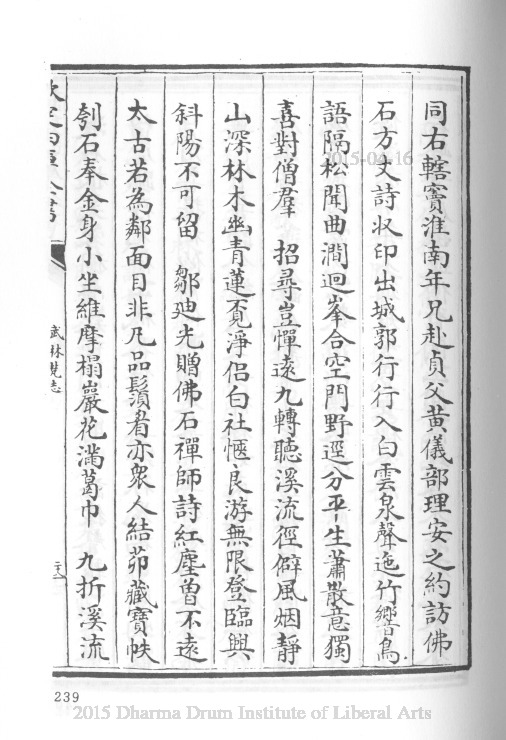 同右轄竇淮南年兄赴貞父黃儀部理安之約訪佛
石方丈詩收印出城郭行行入白雲泉聲迤竹響鳥
語隔松聞曲澗迴峯合空門野逕分平生蕭散意獨
喜對僧羣　招尋豈憚遠九轉聽溪流徑僻風烟靜
山深林木幽青蓮覓淨侶白社愜良游無限登臨興
斜陽不可留　鄒廸光贈佛石禪師詩紅塵曽不逺
太古若為鄰面目非凡品鬚眉亦衆人結茆藏寳帙
刳石奉金身小坐維摩榻巖花滿葛巾　九折溪流
欽定四庫全書
武林梵志
239
2015-04-16
2015 Dharma Drum Institute of Liberal Arts